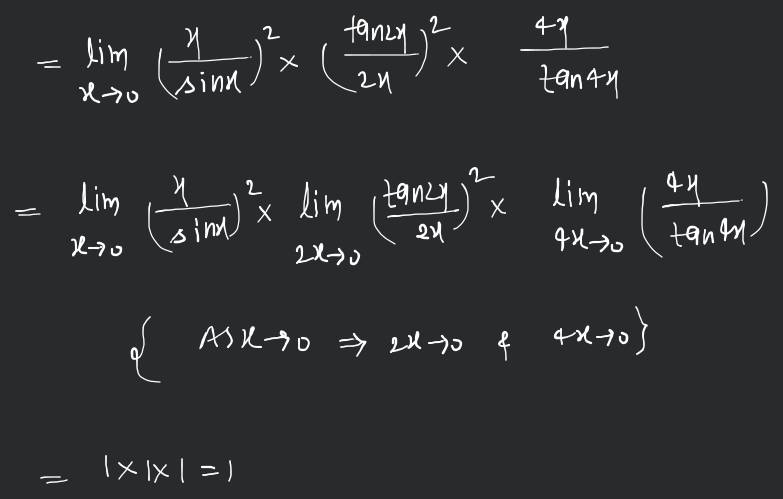 = lim x→0 (x/sinx)² × (tan2x/2x)² × 4x/tan4x
= lim x→0 (x/sinx)² × lim 2x→0 (tan2x/2x)² × lim 4x→0 (4x/tan4x)
{ As x→0 ⇒ 2x→0 & 4x→0 }
= 1×1×1 = 1